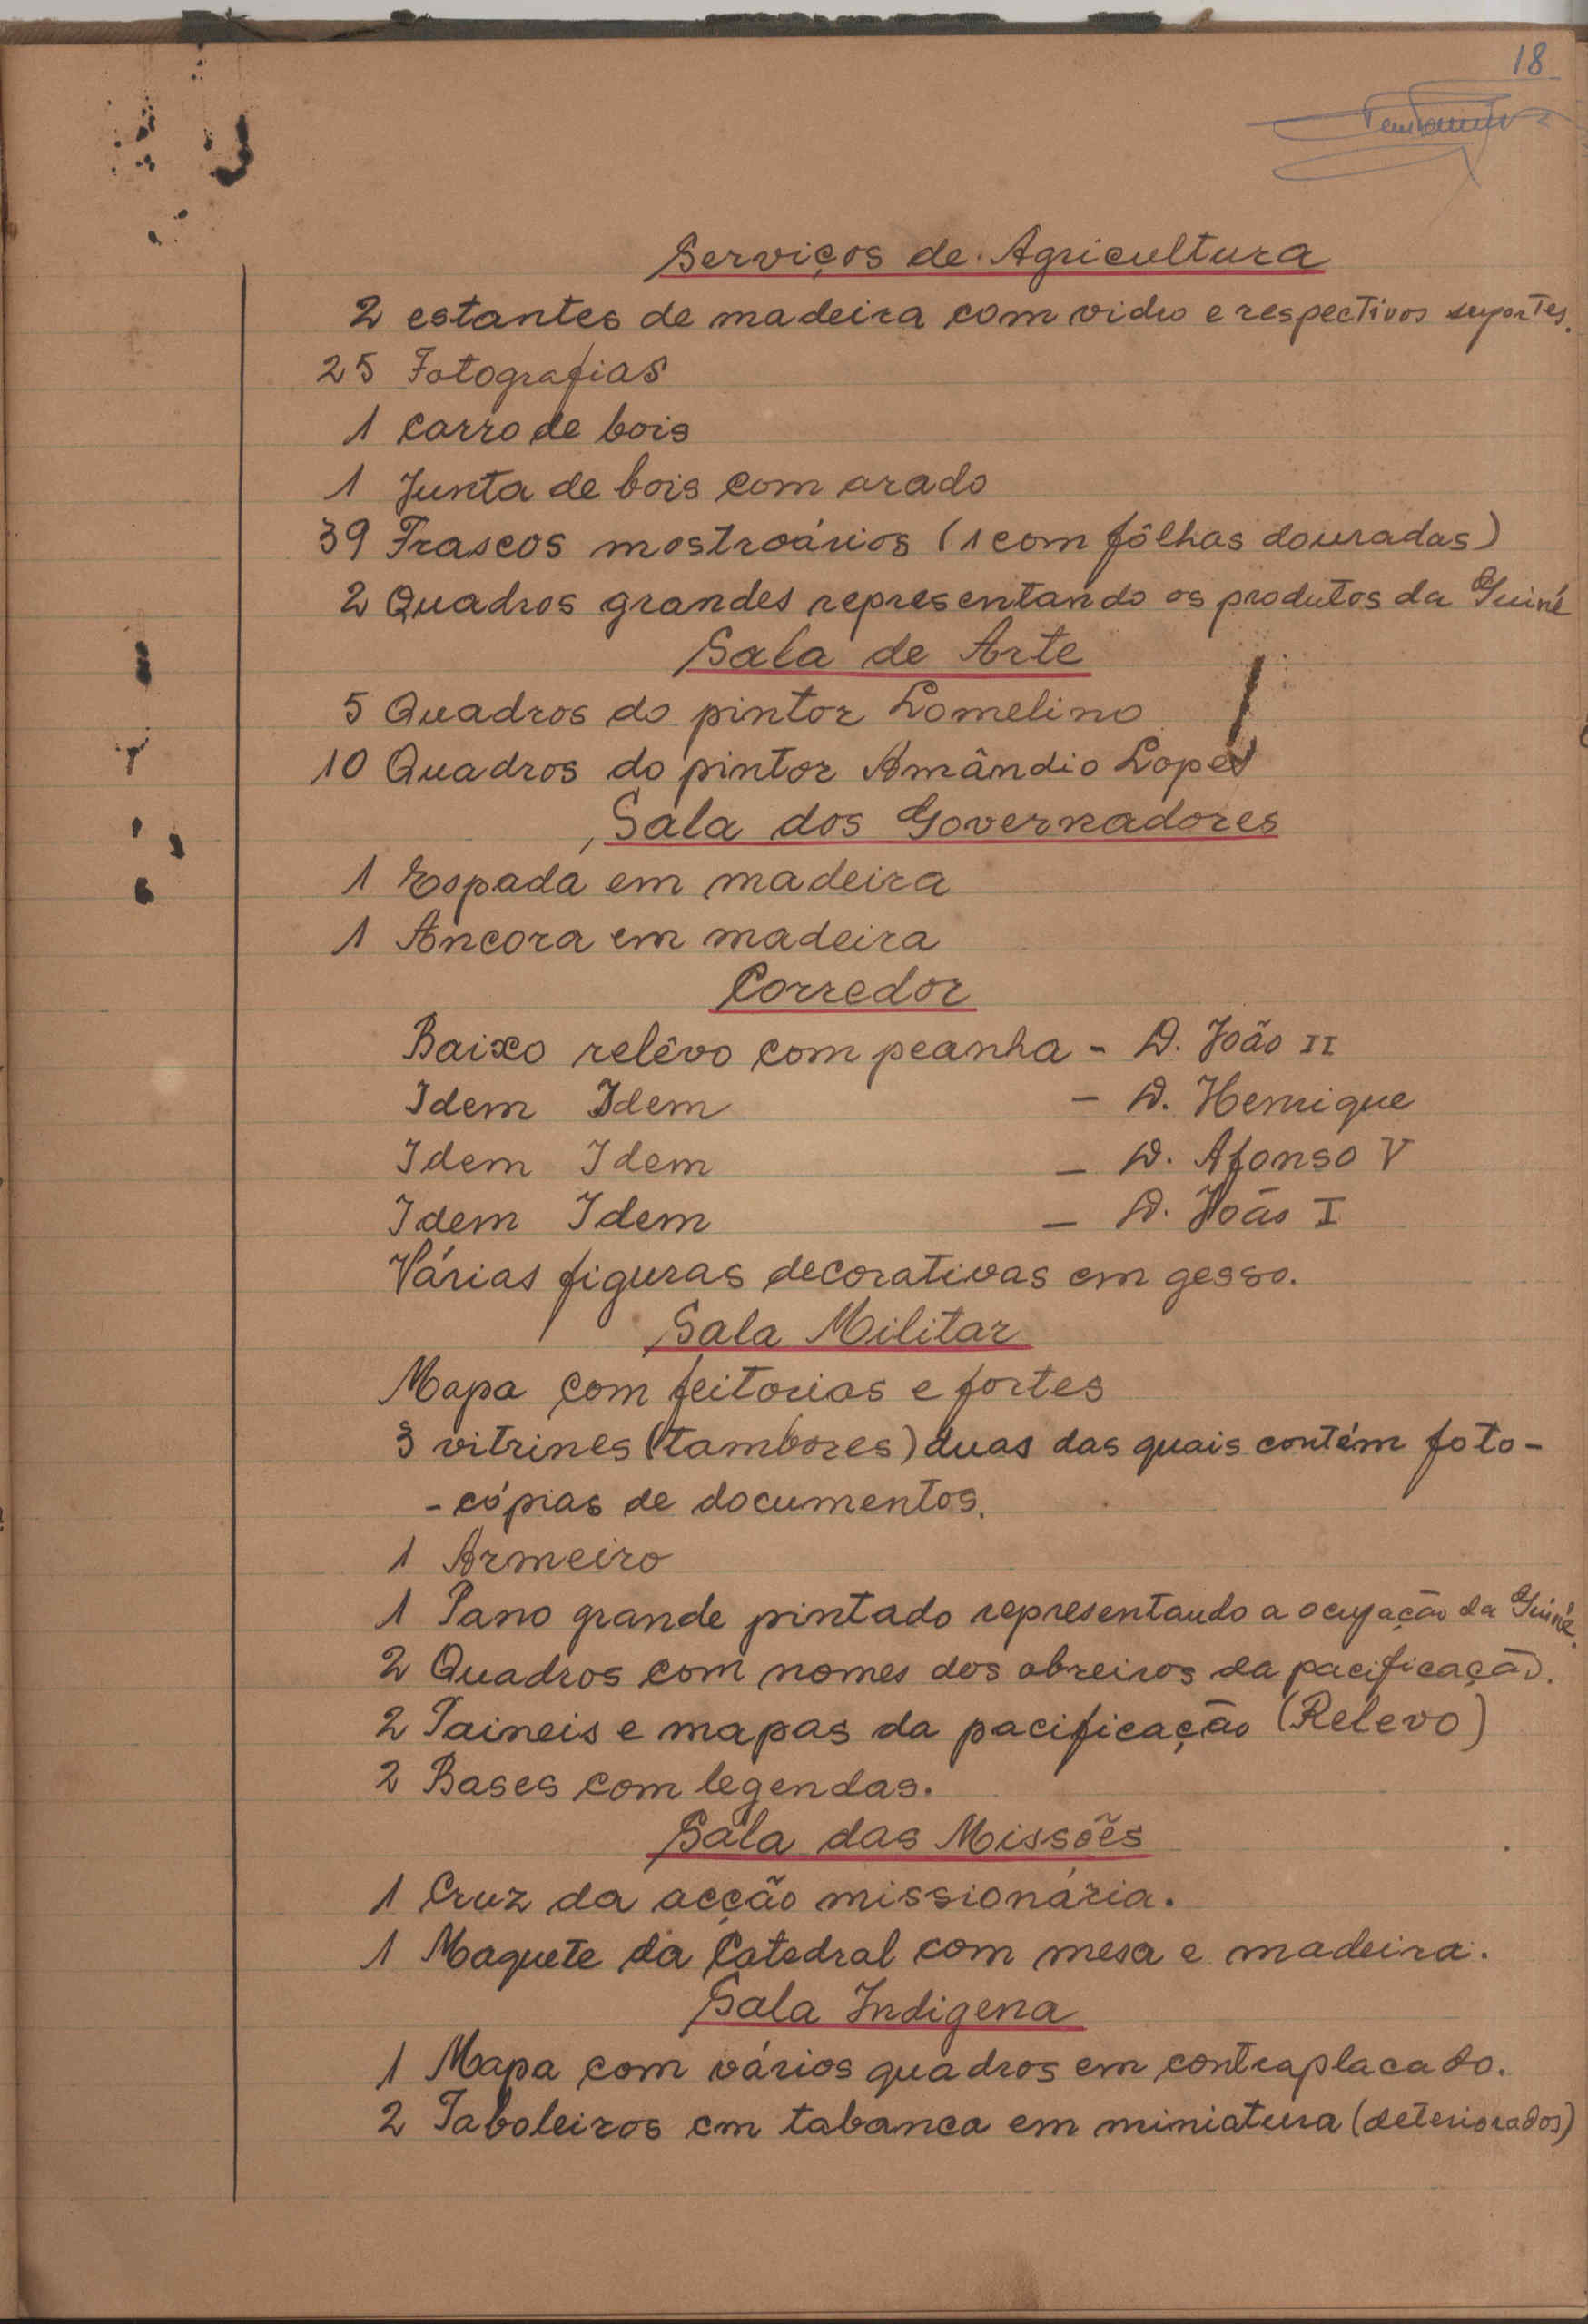 18
Serviços de Agricultura
2 estantes de madeira com vidro e respectivos suportes.
25 Fotografias
1 carro de bois
1 Junta de bois com arado
39 Frascos mostroários (1 com fôlhas douradas)
2 Quadros grandes representando os produtos da Guiné
Sala de Arte
5 Quadros do pintor Lomelino
10 Quadros do pintor Amândio Lopes
Sala dos Governadores
1 Espada em madeira
1 Ancora em madeira
Corredor
Baixo relêvo com peanha - D. João II
Idem Idem - D. Henrique
Idem Idem - D. Afonso V
Idem Idem - D. João I
Várias figuras decorativas em gesso.
Sala Militar
Mapa com feitorias e fortes
3 vitrines (tambores) duas das quais contém foto-
-cópias de documentos.
1 Armeiro
1 Pano grande pintado representando a ocupação da Guiné.
2 Quadros com nomes dos obreiros da pacificação.
2 Paineis e mapas da pacificação (Relevo)
2 Bases com legendas.
Sala das Missões
1 Cruz da acção missionária.
1 Maquete da Catedral com mesa e madeira.
Sala Indigena
1 Mapa com vários quadros em contraplacado.
2 Taboleiros em tabanca em miniatura (deteriorados)